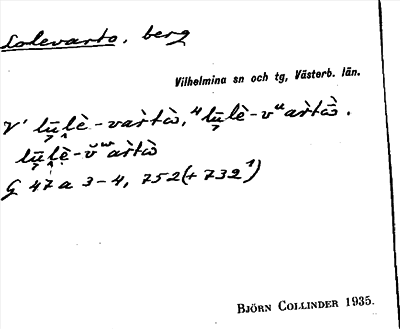 Lolevarto, berg
Vilhelmina sn och tg, Västerb. län.
V' lūlè-vàrtò, "lūlè-vᵘàrtò̄.
lūlè-v̆ʷàrtò
G 47 a 3-4, 752 (+732¹)
BJÖRN COLLINDER 1935.